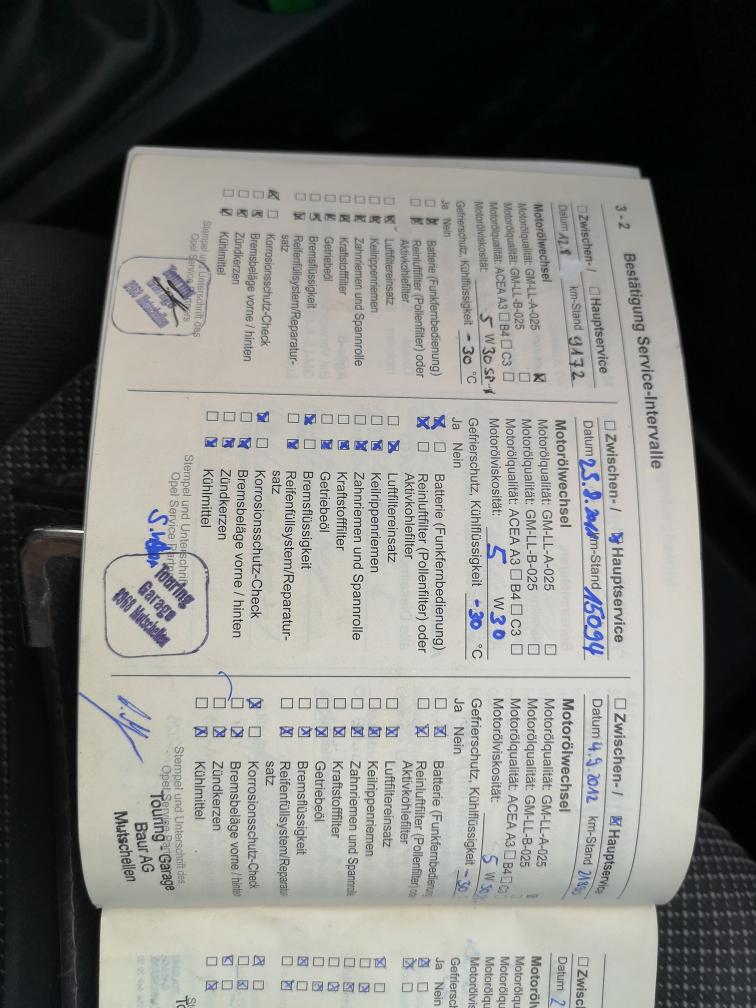 3 - 2
Bestätigung Service-Intervalle
Zwischen- / Hauptservice
Datum 12.8 km-Stand 9172
Motorölwechsel
Motorölqualität: GM-LL-A-025
Motorölqualität: GM-LL-B-025
Motorölqualität: ACEA A3 B4 C3
Motorölviskosität: 5 W 30
Gefrierschutz, Kühlflüssigkeit -30 °C
Ja Nein
Batterie (Funkfernbedienung)
Reinluftfilter (Pollenfilter) oder
Aktivkohlefilter
Luftfiltereinsatz
Keilrippenriemen
Zahnriemen und Spannrolle
Kraftstofffilter
Getriebeöl
Bremsflüssigkeit
Reifenfüllsystem/Reparatur-
satz
Korrosionsschutz-Check
Bremsbeläge vorne / hinten
Zündkerzen
Kühlmittel
Stempel und Unterschrift des
Opel Service
Zwischen- / Hauptservice
Datum 25.8. km-Stand 15094
Motorölwechsel
Motorölqualität: GM-LL-A-025
Motorölqualität: GM-LL-B-025
Motorölqualität: ACEA A3 B4 C3
Motorölviskosität: 5 W 30
Gefrierschutz, Kühlflüssigkeit -30 °C
Ja Nein
Batterie (Funkfernbedienung)
Reinluftfilter (Pollenfilter) oder
Aktivkohlefilter
Luftfiltereinsatz
Keilrippenriemen
Zahnriemen und Spannrolle
Kraftstofffilter
Getriebeöl
Bremsflüssigkeit
Reifenfüllsystem/Reparatur-
satz
Korrosionsschutz-Check
Bremsbeläge vorne / hinten
Zündkerzen
Kühlmittel
Stempel und Unterschrift
Opel Service
Touring
Garage
8968 Mutschellen
Zwischen- / Hauptservice
Datum 4.9.2012 km-Stand
Motorölwechsel
Motorölqualität: GM-LL-A-025
Motorölqualität: GM-LL-B-025
Motorölqualität: ACEA A3 B4
Motorölviskosität: 5 W 30
Gefrierschutz, Kühlflüssigkeit -30
Ja Nein
Batterie (Funkfernbedienung
Reinluftfilter (Pollenfilter)
Aktivkohlefilter
Luftfiltereinsatz
Keilrippenriemen
Zahnriemen und Spannrolle
Kraftstofffilter
Getriebeöl
Bremsflüssigkeit
Reifenfüllsystem/Reparatur
satz
Korrosionsschutz-Check
Bremsbeläge vorne / hinten
Zündkerzen
Kühlmittel
Stempel und Unterschrift des
Opel Service
Touring - Garage
Baur AG
Mutschellen
Zwisch
Datum 2
Ja Nein